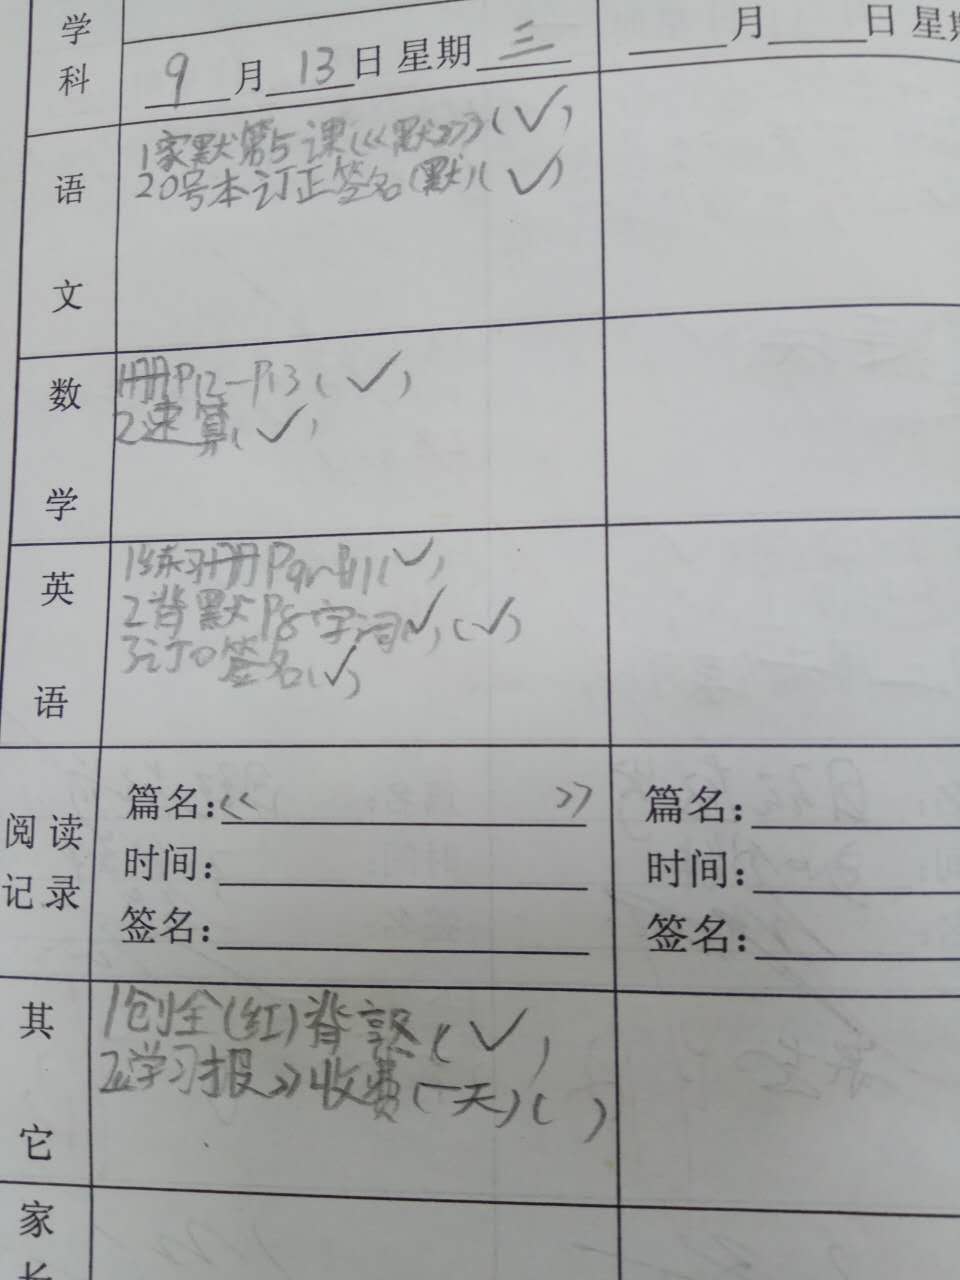 学科
9月13日 星期三
月 日 星
语文
1家默第5课(《默》)(✓)
20号本订正签名(默)(✓)
数学
1册P12-P13(✓)
2速算(✓)
英语
1练习册P9~P11(✓)
2背默P8字词(✓)(✓)
3订0签名(✓)
阅读记录
篇名:《 》
时间:
签名:
篇名:
时间:
签名:
其它
1创全(红)背熟(✓)
2《学习报》收费(一天)( )
家长